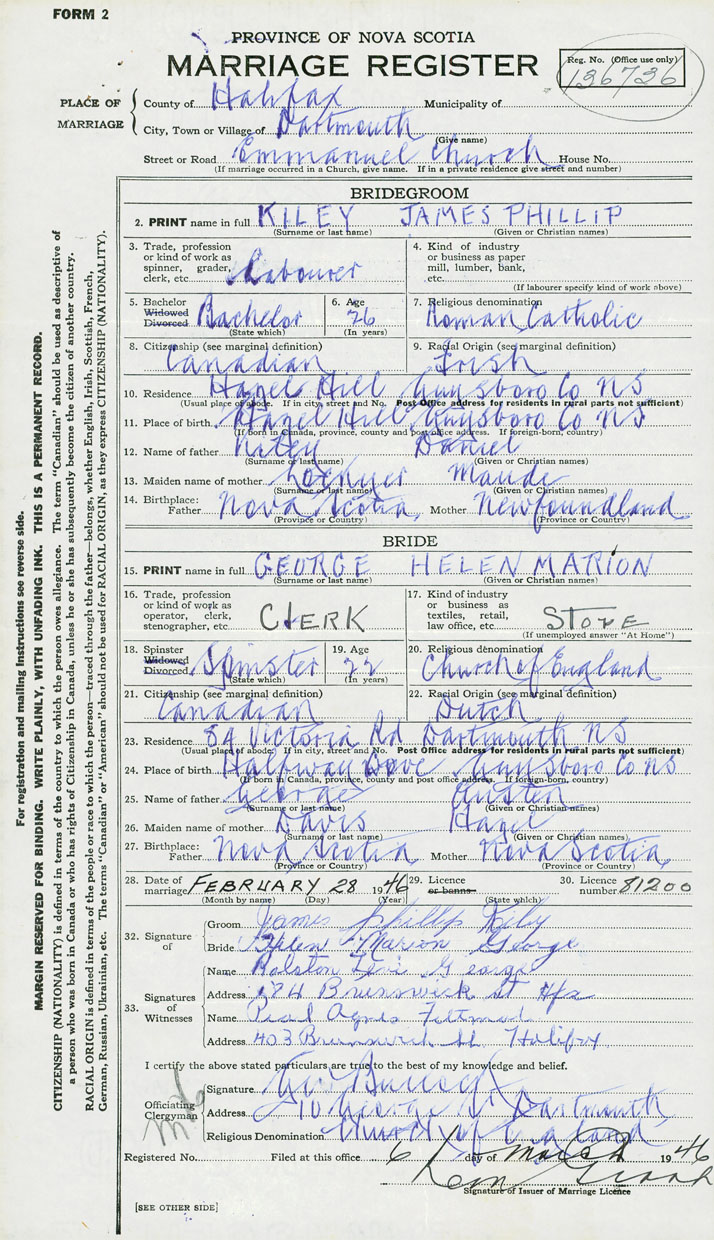 FORM 2
PROVINCE OF NOVA SCOTIA
MARRIAGE REGISTER
Reg. No. (Office use only)
136736
PLACE OF MARRIAGE
County of Halifax Municipality of
City, Town or Village of Dartmouth
(Give name)
Street or Road Emmanuel Church House No.
(If marriage occurred in a Church, give name. If in a private residence give street and number)
BRIDEGROOM
2. PRINT name in full KILEY JAMES PHILLIP
(Surname or last name) (Given or Christian names)
3. Trade, profession or kind of work as spinner, grader, clerk, etc. Labourer
4. Kind of industry or business as paper mill, lumber, bank, etc.
(If labourer specify kind of work above)
5. Bachelor Widowed Divorced Bachelor
(State which)
6. Age 26
(In years)
7. Religious denomination
Roman Catholic
8. Citizenship (see marginal definition)
Canadian
9. Racial Origin (see marginal definition)
Irish
10. Residence Hazel Hill Guysboro Co NS
(Usual place of abode. If in city, street and No. Post Office address for residents in rural parts not sufficient)
11. Place of birth Hazel Hill Guysboro Co NS
(If born in Canada, province, county and post office address. If foreign-born, country)
12. Name of father Kiley Daniel
(Surname or last name) (Given or Christian names)
13. Maiden name of mother Maude
(Surname or last name) (Given or Christian names)
14. Birthplace: Father Nova Scotia Mother Newfoundland
(Province or Country) (Province or Country)
BRIDE
15. PRINT name in full GEORGE HELEN MARION
(Surname or last name) (Given or Christian names)
16. Trade, profession or kind of work as operator, clerk, stenographer, etc. CLERK
17. Kind of industry or business as textiles, retail, law office, etc. STORE
(If unemployed answer "At Home")
18. Spinster Widowed Divorced Spinster
(State which)
19. Age 22
(In years)
20. Religious denomination
Church of England
21. Citizenship (see marginal definition)
Canadian
22. Racial Origin (see marginal definition)
Dutch
23. Residence 84 Victoria Rd Dartmouth NS
(Usual place of abode. If in city, street and No. Post Office address for residents in rural parts not sufficient)
24. Place of birth Halfway Cove Guysboro Co NS
(If born in Canada, province, county and post office address. If foreign-born, country)
25. Name of father George Austen
(Surname or last name) (Given or Christian names)
26. Maiden name of mother Davis Hazel
(Surname or last name) (Given or Christian names)
27. Birthplace: Father Nova Scotia Mother Nova Scotia
(Province or Country) (Province or Country)
28. Date of marriage FEBRUARY 28 1946
(Month by name) (Day) (Year)
29. Licence or banns
(State which)
30. Licence number 81200
32. Signature of
Groom James Phillip Kiley
Bride Helen Marion George
33. Signatures of Witnesses
Name Ralston George
Address Brunswick St Hfx
Name Pearl Agnes
Address 403 Brunswick St. Halifax
I certify the above stated particulars are true to the best of my knowledge and belief.
Officiating Clergyman
Signature
Address George St Dartmouth
Religious Denomination Church of England
Registered No. Filed at this office 6 day of March 1946
Signature of Issuer of Marriage Licence
[SEE OTHER SIDE]
For registration and mailing instructions see reverse side.
MARGIN RESERVED FOR BINDING. WRITE PLAINLY, WITH UNFADING INK. THIS IS A PERMANENT RECORD.
CITIZENSHIP (NATIONALITY) is defined in terms of the country to which the person owes allegiance. The term "Canadian" should be used as descriptive of
a person who was born in Canada or who has rights of Citizenship in Canada, unless he or she has subsequently become the citizen of another country.
RACIAL ORIGIN is defined in terms of the people or race to which the person—traced through the father—belongs, whether English, Irish, Scottish, French,
German, Russian, Ukrainian, etc. The terms "Canadian" or "American" should not be used for RACIAL ORIGIN, as they express CITIZENSHIP (NATIONALITY).